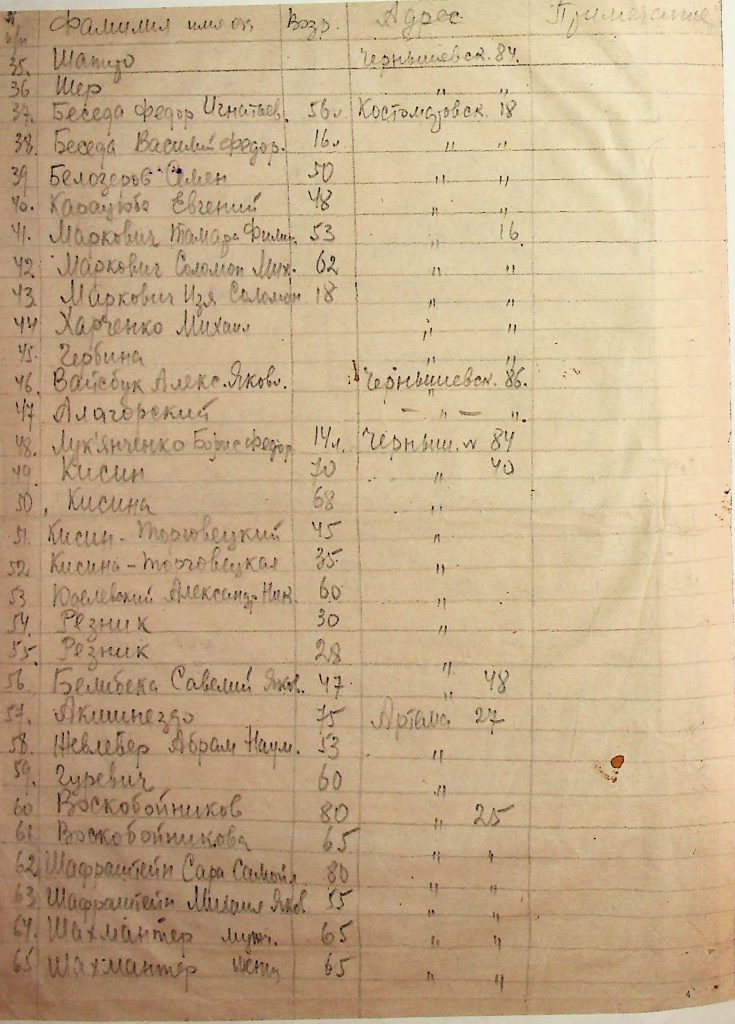 № п/п Фамилия имя от. Возр. Адрес Примечание
35. Шатцо Чернышевск. 84.
36 Шер " "
37. Беседа Федор Игнатьев. 56 л Костомаровск. 18
38. Беседа Василий Федор. 16 л. " "
39. Белозеров Семен 50 " "
40. Евгений 48 " "
41. Маркович Тамара Филип. 53 " 16
42. Маркович Соломон Мих. 62 " "
43. Маркович Изя Соломон 18 " "
44 Харченко Михаил " "
45. Чербина " "
46. Вайсбук Алекс. Яковл. Чернышевск. 86.
47 Алагорский – " – ".
48. Лук'янченко Борис Федор 14 л. Черныш. 84
49. Кисин 70 " 40
50. Кисина 68 "
51. Кисин-Торговецкий 45 "
52. Кисина-Торговецкая 35 "
53 Александр Ник. 60 "
54. Резник 30 "
55. Резник 28 "
56. Белибека Савелий Яков. 47 " 48
57. Акшинездо 75 Артема 27
58. Жевлебер Абрам Наум. 53 "
59. Гуревич 60 "
60 Воскобойников 80 " 25
61 Воскобойникова 65 " "
62. Шафраштейн Сара Самойл 80 " "
63. Шафраштейн Михаил Яков. 55 " "
64. Шахмантер мужч. 65 " "
65. Шахмантер женщ 65 " "